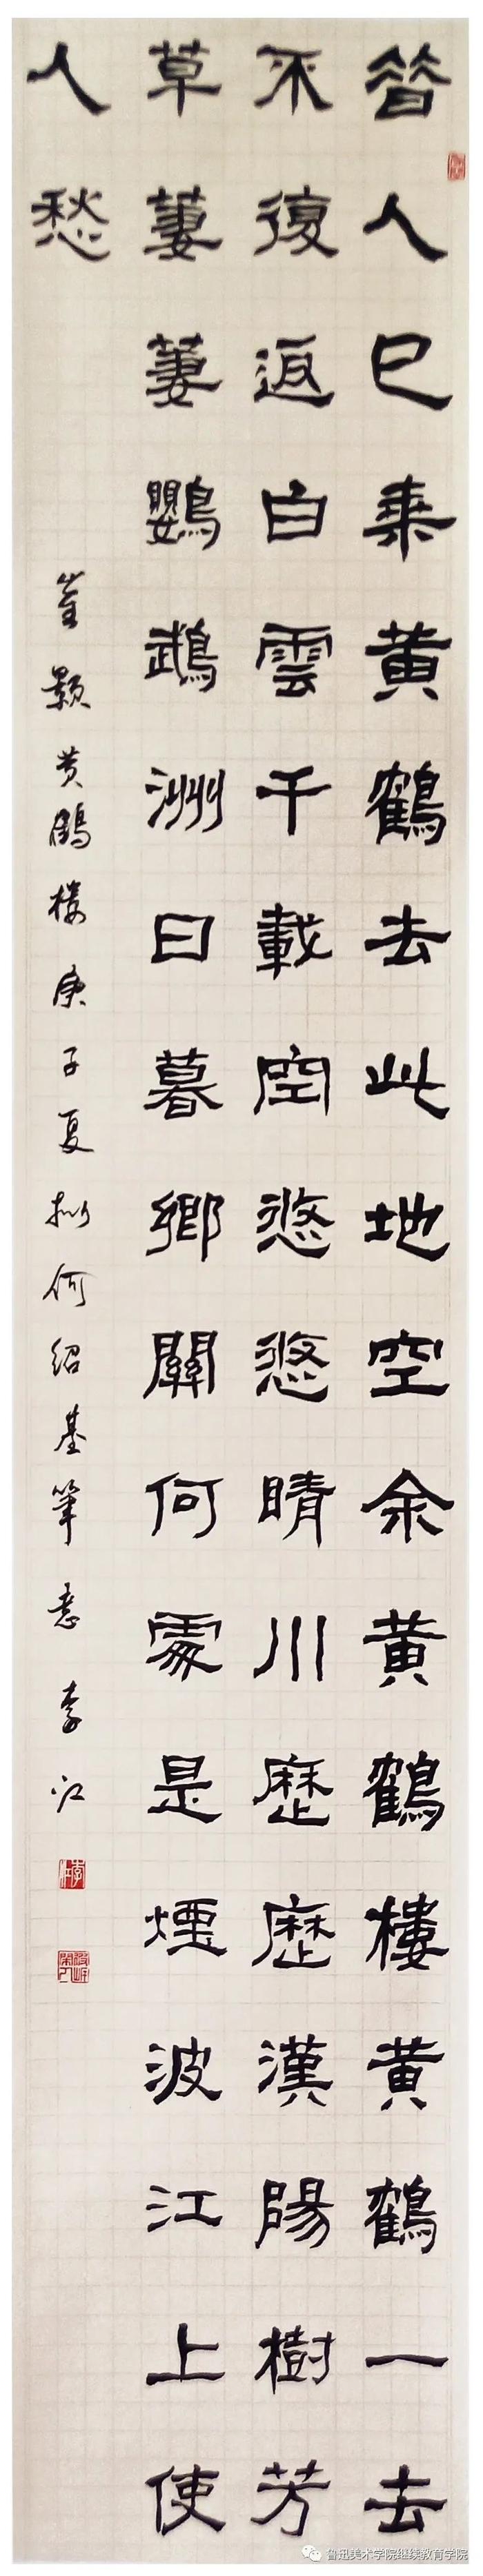 昔人已乘黄鶴去此地空余黄鶴樓黄鶴一去
不復返白雲千載空悠悠晴川歷歷漢陽樹芳
草萋萋鸚鵡洲日暮鄉關何處是煙波江上使
人愁
崔顥黄鶴樓庚子夏拟何绍基筆意李江
鲁迅美术学院继续教育学院